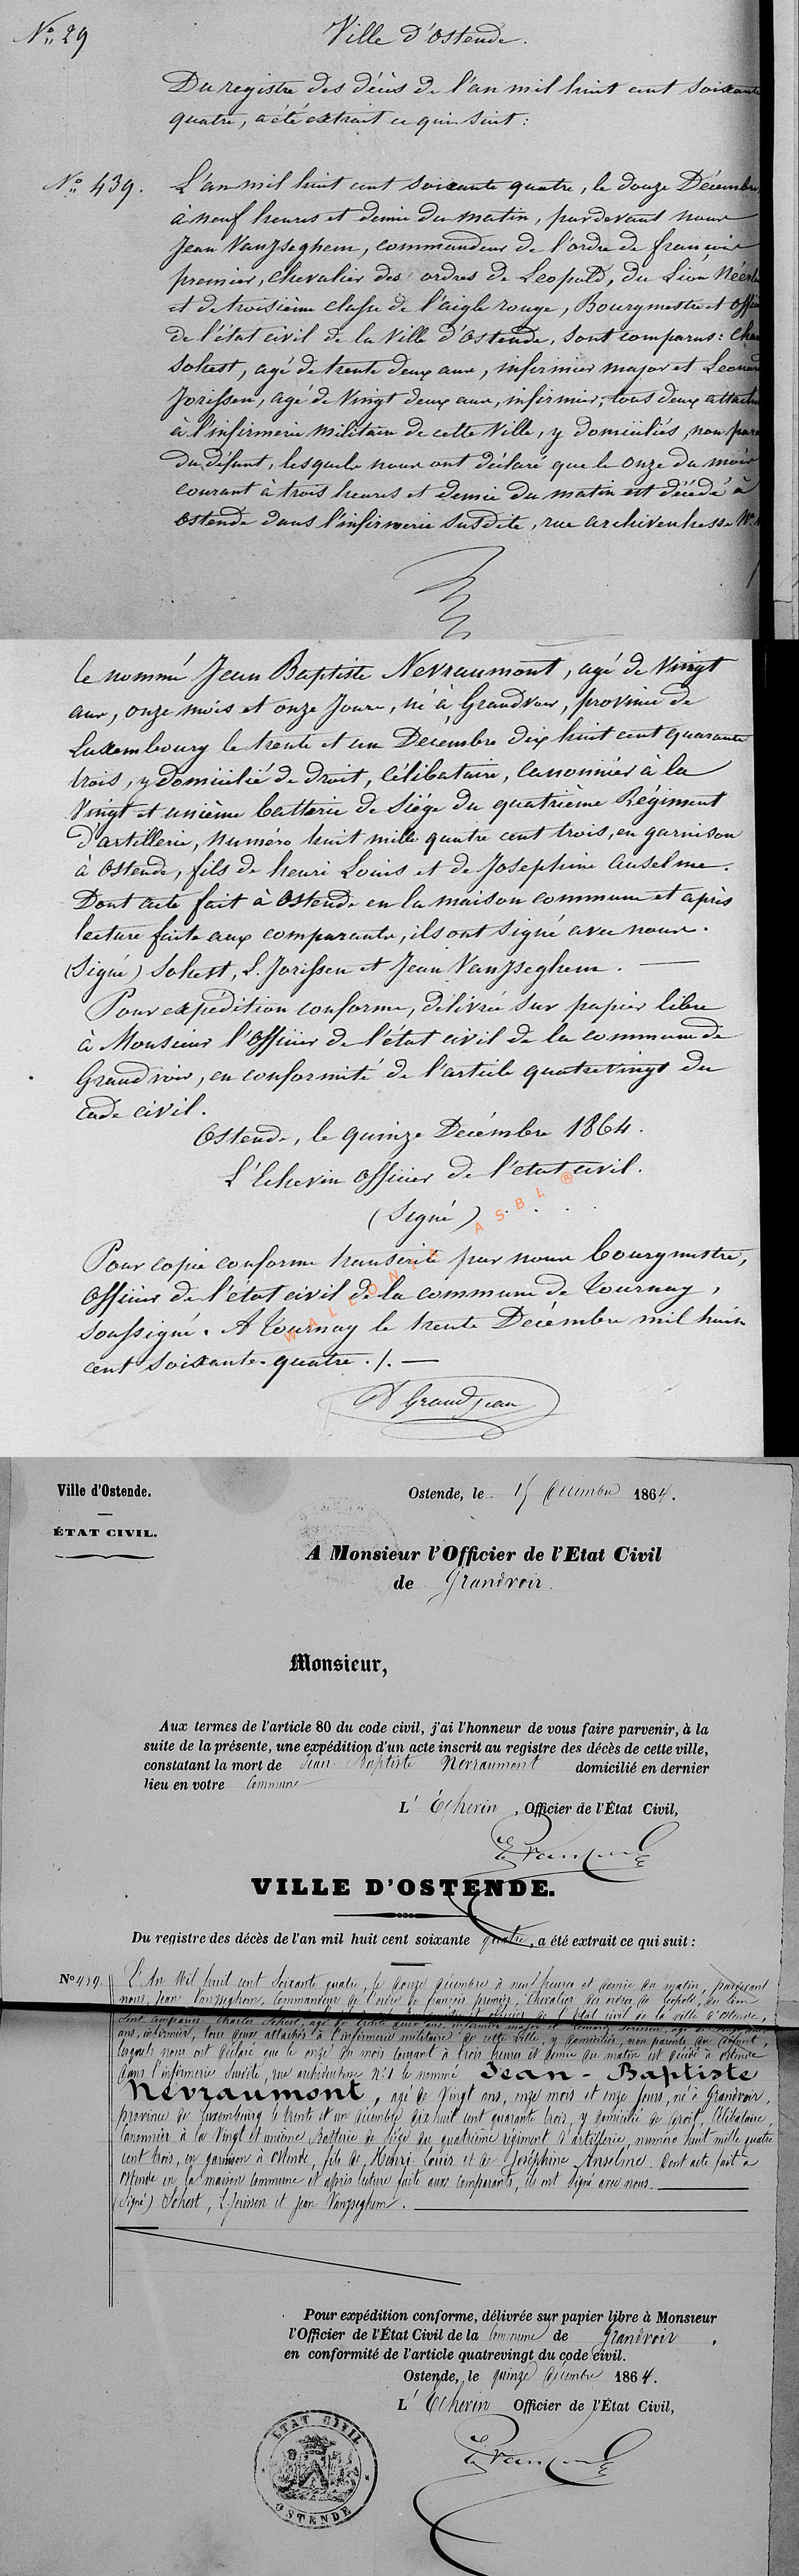 N° 29
Ville d'Ostende.
Du registre des décès de l'an mil huit cent soixante
quatre, a été extrait ce qui suit :
N° 439.
L'an mil huit cent soixante quatre, le douze Décembre
à neuf heures et demie du matin, pardevant nous
Jean Vanjseghem, commandeur de l'ordre de françois
premier, chevalier des ordres de Leopold, du Lion Néerl
et de troisième classe de l'aigle rouge, Bourgmestre et offi
de l'état civil de la Ville d'Ostende, sont comparus : Cha
Sohest, agé de trente deux ans, infirmier major et Leonard
Jorissen, agé de Vingt deux ans, infirmier, tous deux attachés
à l'infirmerie militaire de cette Ville, y domiciliés, non pare
du défunt, lesquels nous ont déclaré que le onze du mois
courant à trois heures et demie du matin est décédé à
Ostende dans l'infirmerie susdite, rue archiduchesse N°
le nommé Jean Baptiste Nevraumont, agé de Vingt
ans, onze mois et onze Jours, né à Grandvoir, province de
Luxembourg le trente et un Decembre dix huit cent quarante
trois, y domicilié de droit, Célibataire, canonnier à la
Vingt et unième batterie de Siége du quatrième Régiment
d'artillerie, numéro huit mille quatre cent trois, en garnison
à Ostende, fils de henri Louis et de Josephine Anselme.
Dont acte fait à Ostende en la maison commune et après
lecture faite aux comparants, ils ont signé avec nous.
(Signé) Sohest, L. Jorissen et Jean Vanjseghem. —
Pour expédition conforme, délivrée sur papier libre
à Monsieur l'Officier de l'état civil de la commune de
Grandvoir, en conformité de l'article quatrevingt du
code civil.
Ostende, le quinze Decémbre 1864.
L'Echevin officier de l'etat civil.
(Signé) . . . .
WALLONIA ASBL ®
Pour copie conforme transcrite par nous bourgmestre,
officier de l'état civil de la commune de Tournay,
soussigné. A Tournay le trente Decémbre mil huit
cent soixante-quatre ./. —
A Grandjean
Ville d'Ostende.
ÉTAT CIVIL.
Ostende, le 15 Décembre 1864.
A Monsieur l'Officier de l'Etat Civil
de Grandvoir.
Monsieur,
Aux termes de l'article 80 du code civil, j'ai l'honneur de vous faire parvenir, à la
suite de la présente, une expédition d'un acte inscrit au registre des décès de cette ville,
constatant la mort de Jean Baptiste Nevraumont domicilié en dernier
lieu en votre Commune
L' Echevin , Officier de l'État Civil,
VILLE D'OSTENDE.
Du registre des décès de l'an mil huit cent soixante quatre, a été extrait ce qui suit :
N° 439.
L'An Mil huit cent Soixante quatre, le douze Décembre à neuf heures et demie du matin, pardevant
nous, Jean Vanjseghem, Commandeur de l'ordre de françois premier, Chevalier des ordres de Léopold, du Lion
état civil de la ville d'Ostende,
Sont comparus : Charles Sohest, agé de trente deux ans, infirmier major et
ans, infirmier, tous deux attachés à l'infirmerie militaire de cette Ville, y domiciliés, non parents du défunt,
lesquels nous ont déclaré que le onze du mois courant à trois heures et demie du matin est décédé à Ostende
dans l'infirmerie Susdite, rue archiduchesse N° 1 le nommé Jean - Baptiste
Nevraumont, agé de Vingt ans, onze mois et onze jours, né à Grandvoir,
province de Luxembourg le trente et un décembre dix huit cent quarante trois, y domicilié de droit, Célibataire,
Canonnier à la Vingt et unième Batterie de Siége du quatrième régiment d'artillerie, numéro huit mille quatre
cent trois, en garnison à Ostende, fils de Henri Louis et de Joséphine Anselme. Dont acte fait à
Ostende en la maison commune et après lecture faite aux comparants, ils ont signé avec nous.
(Signé) Sohest, L. Jorissen et Jean Vanjseghem.
Pour expédition conforme, délivrée sur papier libre à Monsieur
l'Officier de l'État Civil de la Commune de Grandvoir ,
en conformité de l'article quatrevingt du code civil.
Ostende, le quinze Décembre 1864.
L' Echevin Officier de l'État Civil,
ETAT CIVIL
OSTENDE